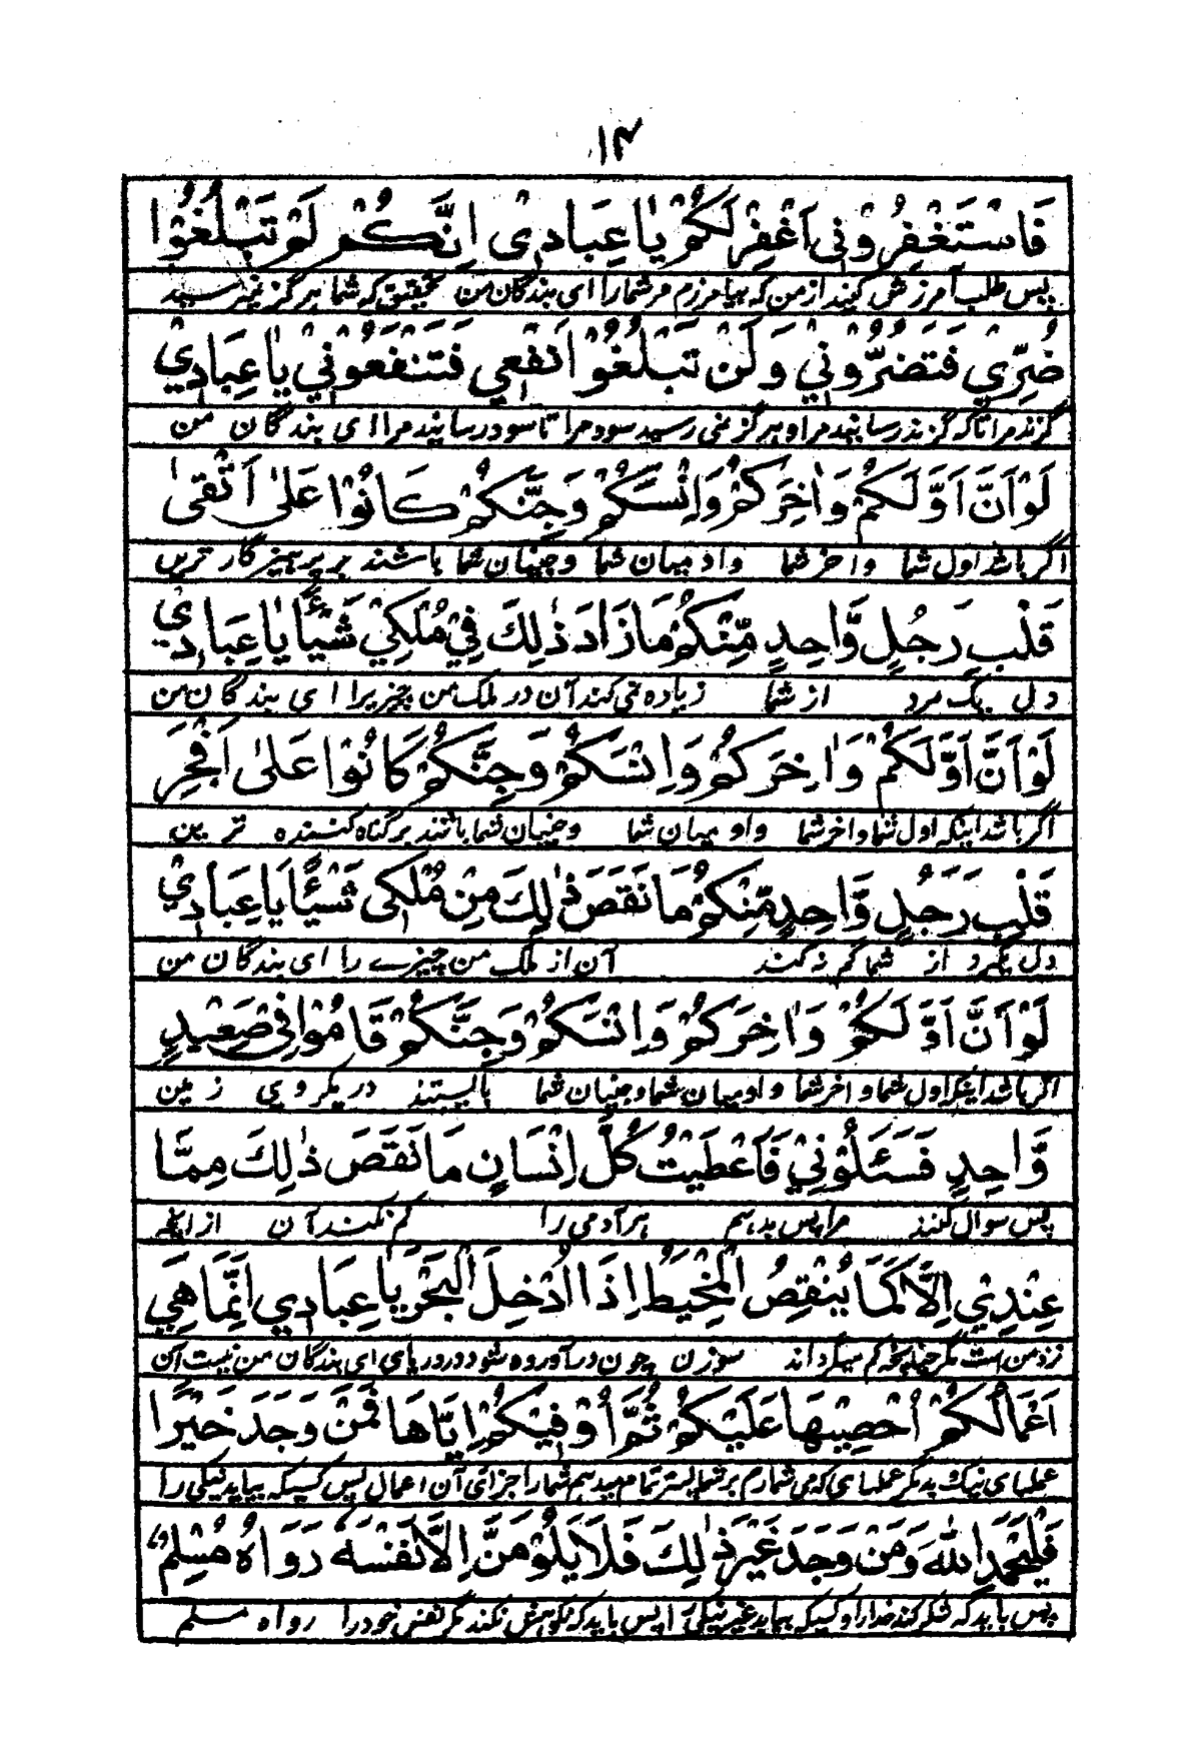 ۱۴
فَاسْتَغْفِرُوْنِي اَغْفِرْلَكُمْ يَا عِبَادِى اِنَّكُمْ لَوْ تَبْلُغُوْا
پس طلب آمرزش کنید از من که بیامرزم مر شما را ای بندگان من تحقیق که شما هرگز نمیرسید
ضُرِّيْ فَتَضُرُّوْنِيْ وَلَنْ تَبْلُغُوْا اَنْفَعِي فَتَنْفَعُوْنِيْ يٰا عِبَادِيْ
گزند مرا تا که گزند رسانید مرا و هرگز نمی رسید سود مرا تا سود رسانید مرا ای بندگان من
لَوْ اَنَّ اَوَّلَكُمْ وَاٰخِرَكُمْ وَاِنْسَكُمْ وَجِنَّكُمْ كَانُوْا عَلٰى اَتْقٰى
اگر باشد اول شما واخر شما وادمیان شما وجنیان شما باشند بر پرهیزگار ترین
قَلْبِ رَجُلٍ وَّاحِدٍ مِّنْكُمْ مَا زَادَ ذٰلِكَ فِيْ مُلْكِيْ شَيْئًا يٰا عِبَادِيْ
دل یک مرد از شما زیاده نمی کند آن در ملک من چیزیرا ای بندگان من
لَوْ اَنَّ اَوَّلَكُمْ وَاٰخِرَكُمْ وَاِنْسَكُمْ وَجِنَّكُمْ كَانُوْا عَلٰى اَفْجَرِ
اگر باشد اینکه اول شما واخر شما وادمیان شما وجنیان شما باشند بر گناه کننده ترین
قَلْبِ رَجُلٍ وَّاحِدٍ مِّنْكُمْ مَا نَقَصَ ذٰلِكَ مِنْ مُلْكِى شَيْئًا يَا عِبَادِيْ
دل یکمرد از شما کم نه کند آن از ملک من چیزے را ای بندگان من
لَوْ اَنَّ اَوَّلَكُمْ وَاٰخِرَكُمْ وَاِنْسَكُمْ وَجِنَّكُمْ قَامُوْا فِيْ صَعِيْدٍ
اگر باشد اینکه اول شما واخر شما وادمیان شما وجنیان شما بایستند در یکروی زمین
وَّاحِدٍ فَسَئَلُوْنِيْ فَاَعْطَيْتُ كُلَّ اِنْسَانٍ مَا نَقَصَ ذٰلِكَ مِمَّا
پس سوال کنند مرا پس بدهم هر آدمی را کم نکند آن از انچه
عِنْدِيْ اِلَّا كَمَا يُنْقِصُ الْمِخْيَطُ اِذَا اُدْخِلَ الْبَحْرَ يَا عِبَادِي اِنَّمَا هِيَ
نزد من است مگر چنانچه کم میگرداند سوزن چون در آورده شود در دریای ای بندگان من نیست آن
اَعْمَالُكُمْ اُحْصِيْهَا عَلَيْكُمْ ثُمَّ اُوَفِّيْكُمْ اِيَّاهَا فَمَنْ وَجَدَ خَيْرًا
عملهای نیک وبد مگر عملهای که می شمارم بر شما پستر تمام میدهم شما را جزای آن اعمال پس کسیکه بیابد نیکی را
فَلْيَحْمَدِ اللّٰهَ وَمَنْ وَجَدَ غَيْرَ ذٰلِكَ فَلَا يَلُوْمَنَّ اِلَّا نَفْسَهٗ رَوَاهُ مُسْلِمٌ
پس باید که شکر کند خدا را وکسیکه بیابد غیر نیکی را پس باید که نکوهش نکند مگر نفس خود را رواه مسلم